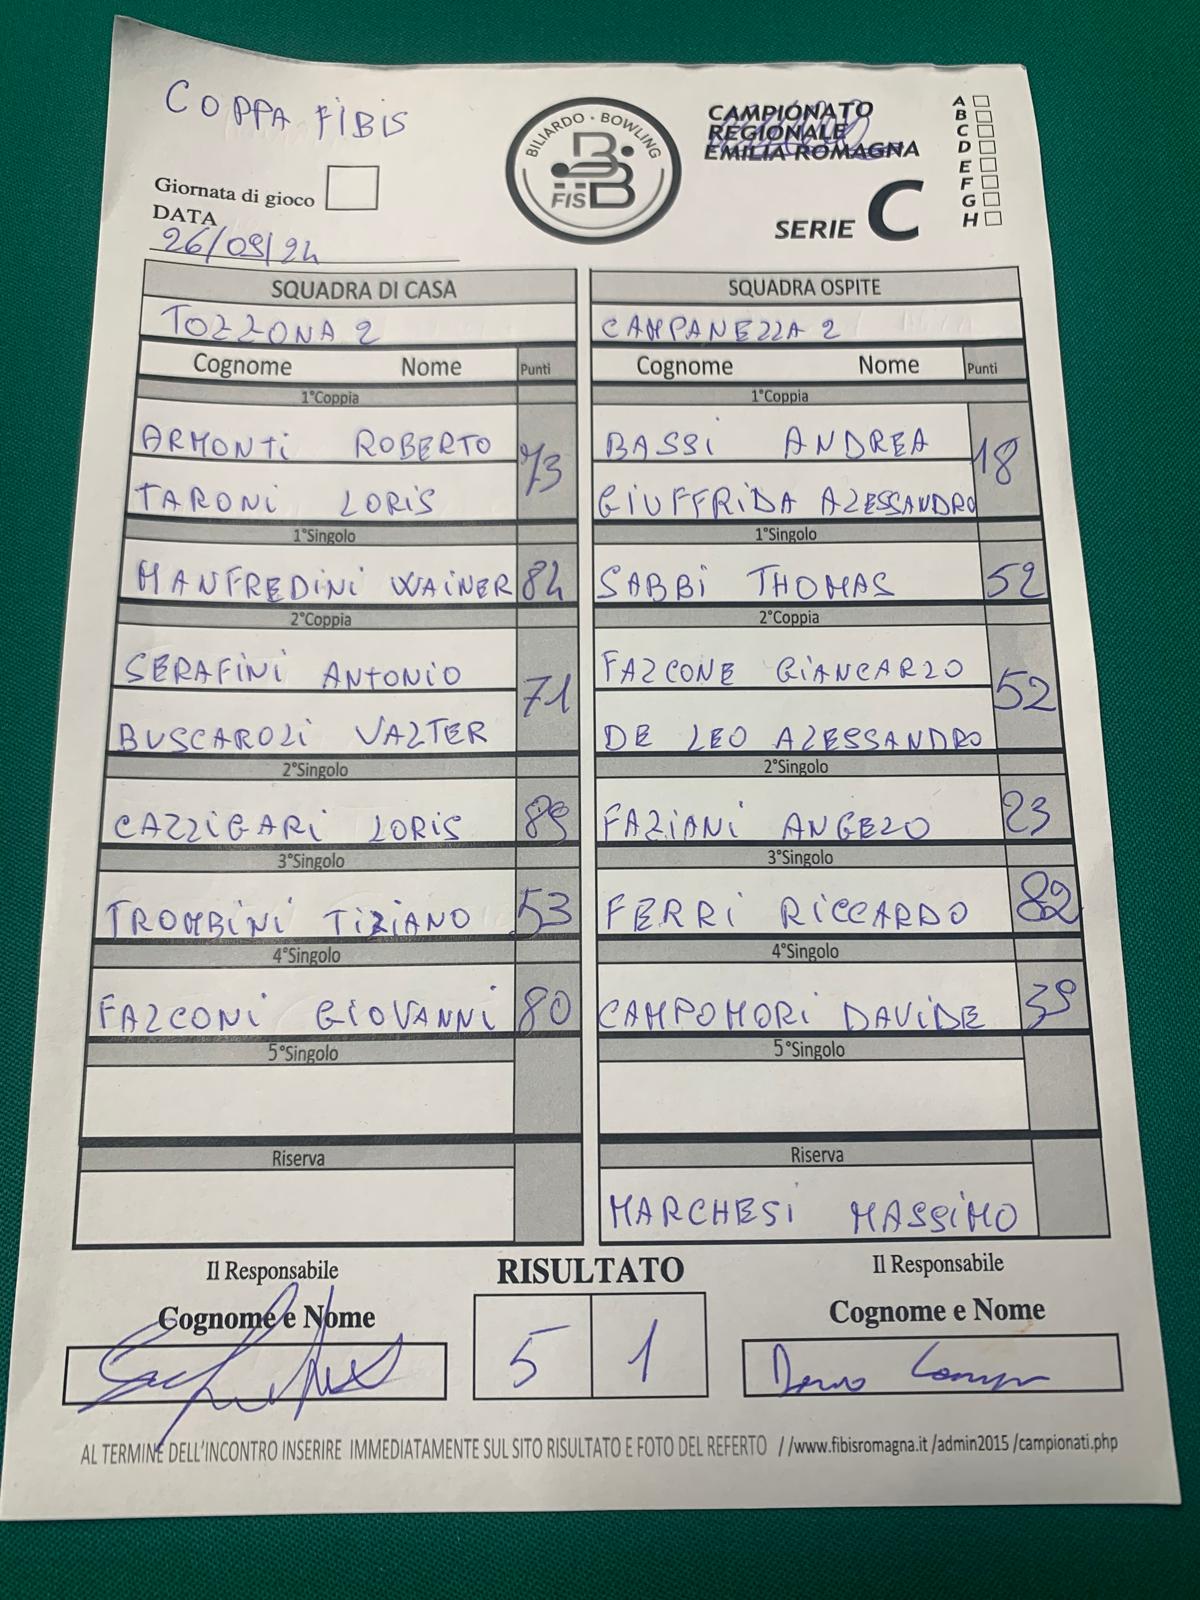 COPPA FIBIS
BILIARDO • BOWLING
FISBB
CAMPIONATO
REGIONALE
EMILIA ROMAGNA
SERIE C
A
B
C
D
E
F
G
H
Giornata di gioco
DATA
26/09/24
SQUADRA DI CASA SQUADRA OSPITE
TOZZONA 2 CAMPANELLA 2
Cognome Nome Punti Cognome Nome Punti
1°Coppia 1°Coppia
ARMONTI ROBERTO 73 BASSI ANDREA 18
TARONI LORIS GIUFFRIDA ALESSANDRO
1°Singolo 1°Singolo
MANFREDINI WAINER 84 SABBI THOMAS 52
2°Coppia 2°Coppia
SERAFINI ANTONIO 71 FALCONE GIANCARLO 52
BUSCAROLI VALTER DE LEO ALESSANDRO
2°Singolo 2°Singolo
CALLIGARI LORIS 89 FAZIANI ANGELO 23
3°Singolo 3°Singolo
TROMBINI TIZIANO 53 FERRI RICCARDO 82
4°Singolo 4°Singolo
FALCONI GIOVANNI 80 CAMPOMORI DAVIDE 39
5°Singolo 5°Singolo
Riserva Riserva
MARCHESI MASSIMO
Il Responsabile RISULTATO Il Responsabile
Cognome e Nome Cognome e Nome
5 1
AL TERMINE DELL'INCONTRO INSERIRE IMMEDIATAMENTE SUL SITO RISULTATO E FOTO DEL REFERTO //www.fibisromagna.it /admin2015 /campionati.php